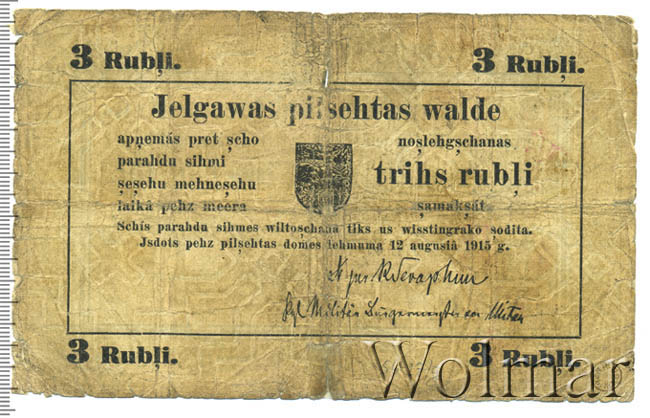 3 Rubļi.
3 Rubļi.
Jelgawas pilsehtas walde
apņemás pret ṣcho
parahdu sihmi
ṣeṣehu mehneṣehu
laikâ pehz meera
noṣlehgṣchanas
trihs rubļi
ṣamakṣát
Schis parahdu sihmes wiltoṣchana tiks us wisstingrako ṣodita.
Jsdots pehz pilṣehtas domes lehmuma 12 augustâ 1915 g.
Militär Bürgermeister von Mitau
3 Rubļi.
3 Rubļi.
Wolmar